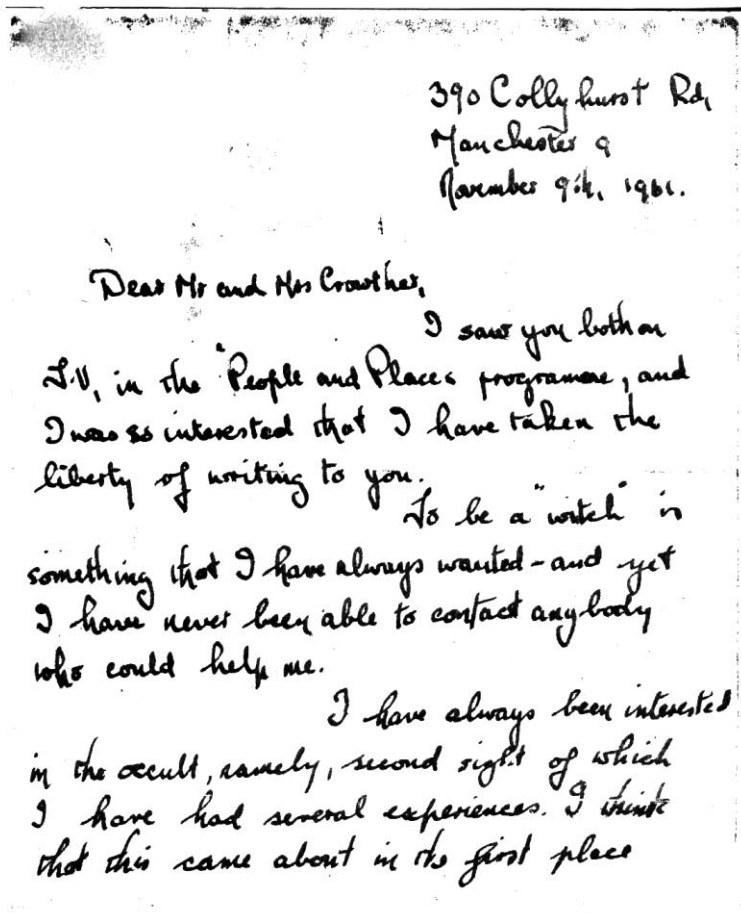 390 Collyhurst Rd,
Manchester 9
November 9th, 1961.
Dear Mr and Mrs Crowther,
I saw you both on
T.V, in the "People and Places programme, and
I was so interested that I have taken the
liberty of writing to you.
To be a "witch" is
something that I have always wanted - and yet
I have never been able to contact anybody
who could help me.
I have always been interested
in the occult, namely, second sight of which
I have had several experiences. I think
that this came about in the first place